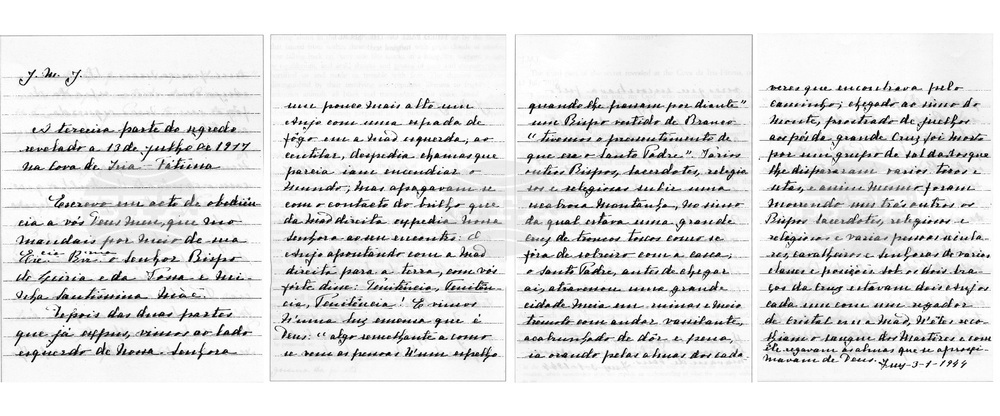 J. M. J.
A terceira parte do segredo
revelado a 13 de julho de 1917
na Cova de Iria - Fátima
Escrevo em acto de obediên-
cia a vós Deus meu, que mo
mandais por meio de sua
Ex.cia Rev.ma o Senhor Bispo
de Leiria e da Vossa e mi-
nha Santíssima Mãe.
Depois das duas partes
que já expus, vimos ao lado
esquerdo de Nossa Senhora
um pouco mais alto um
Anjo com uma espada de
fôgo em a mão esquerda; ao
centilar, despedia chamas que
parecia iam encendiar o
mundo; mas apagavam-se
com o contacto do brilho que
da mão direita expedia Nossa
Senhora ao seu encontro: O
Anjo apontando com a mão
direita para a terra, com voz
forte disse: Penitência, Penitên-
cia, Penitência! E vimos
n'uma luz emensa que é
Deus: "algo semelhante a como
se vem as pessoas n'um espelho
quando lhe passam por diante"
um Bispo vestido de Branco
"tivemos o pressentimento de
que era o Santo Padre". Varios
outros Bispos, Sacerdotes, religio
sos e religiosas subir uma
escabrosa montanha, no simo
da qual estava uma grande
Cruz de troncos toscos como se
fôra de sobreiro com a casca;
o Santo Padre, antes de chegar
aí, atravessou uma grande
cidade meia em ruinas e meio
tremulo com andar vacilante,
acabrunhado de dôr e pena,
ia orando pelas almas dos cada
veres que encontrava pelo
caminho; chegado ao simo do
monte, prostrado de juelhos
aos pés da grande Cruz foi morto
por um grupo de soldados que
lhe dispararam varios tiros e
setas, e assim mesmo foram
morrendo uns trás outros os
Bispos Sacerdotes, religiosos e
religiosas e varias pessoas secula-
res, cavalheiros e senhoras de varias
classes e posições. Sob os dois bra-
ços da Cruz estavam dois Anjos
cada um com um regador
de cristal em a mão, n'êles reco-
lhiam o sangue dos Martires e com
êle regavam as almas que se aproxi-
mavam de Deus.
Tuy-3-1-1944